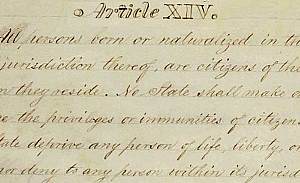 Article XIV.
All persons born or naturalized in
jurisdiction thereof, are citizens of the
they reside. No State shall make
the privileges or immunities of citizens
deprive any person of life, liberty, or
deny to any person within its